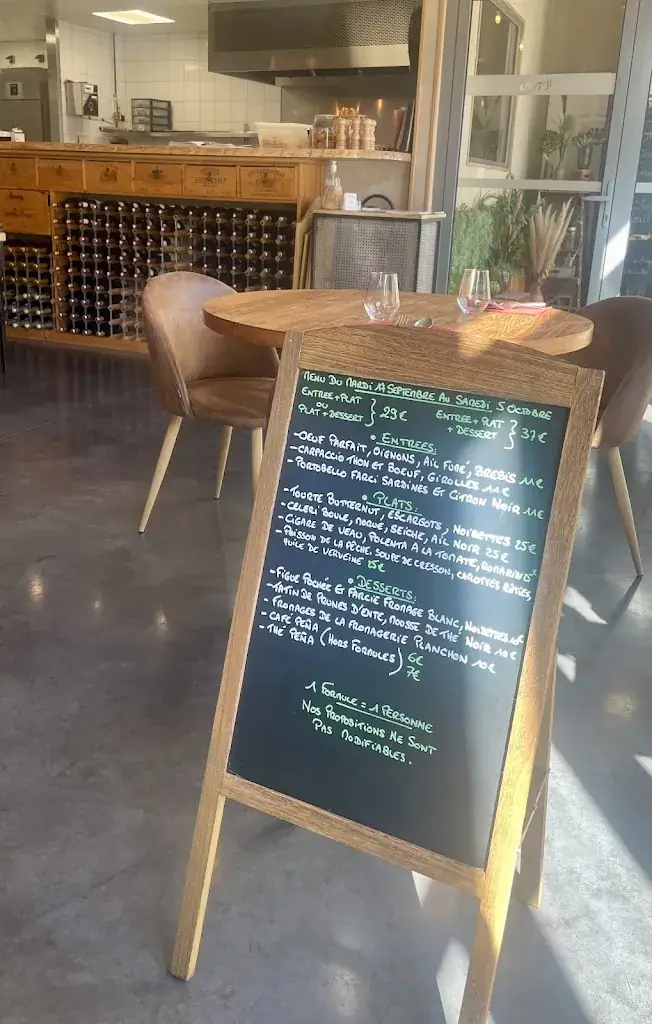 MENU DU MARDI 17 SEPTEMBRE AU SAMEDI 5 OCTOBRE
ENTREE + PLAT
OU
PLAT + DESSERT } 29€
ENTREE + PLAT
+ DESSERT } 37€
• ENTREES:
- OEUF PARFAIT, OIGNONS, AIL FUMÉ, BREBIS 11€
- CARPACCIO THON ET BOEUF, GIROLLES 11€
- PORTOBELLO FARCI SARDINES ET CITRON NOIR 11€
• PLATS:
- TOURTE BUTTERNUT, ESCARGOTS, NOISETTES 25€
- CELERI BOULE, MORUE, SEICHE, AIL NOIR 25€
- CIGARE DE VEAU, POLENTA A LA TOMATE, ROMARIN 25€
- POISSON DE LA PÊCHE, SOUPE DE CRESSON, CAROTTES RÔTIES,
HUILE DE VERVEINE 25€
• DESSERTS:
- FIGUE POCHÉE ET FARCIE FROMAGE BLANC, NOISETTES 10€
- TATIN DE PRUNES D'ENTE, MOUSSE DE THÉ NOIR 10€
- FROMAGES DE LA FROMAGERIE PLANCHON 10€
- CAFÉ PEÑA
- THÉ PEÑA (HORS FORMULES) 6€
7€
1 FORMULE = 1 PERSONNE
NOS PROPOSITIONS NE SONT
PAS MODIFIABLES.